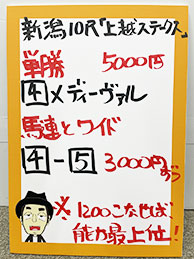 新潟10R「上越ステークス」
単勝 5000円
4メディーヴァル
馬連とワイド
4-5 3000円ずつ
※1200こなせば、
能力最上位!